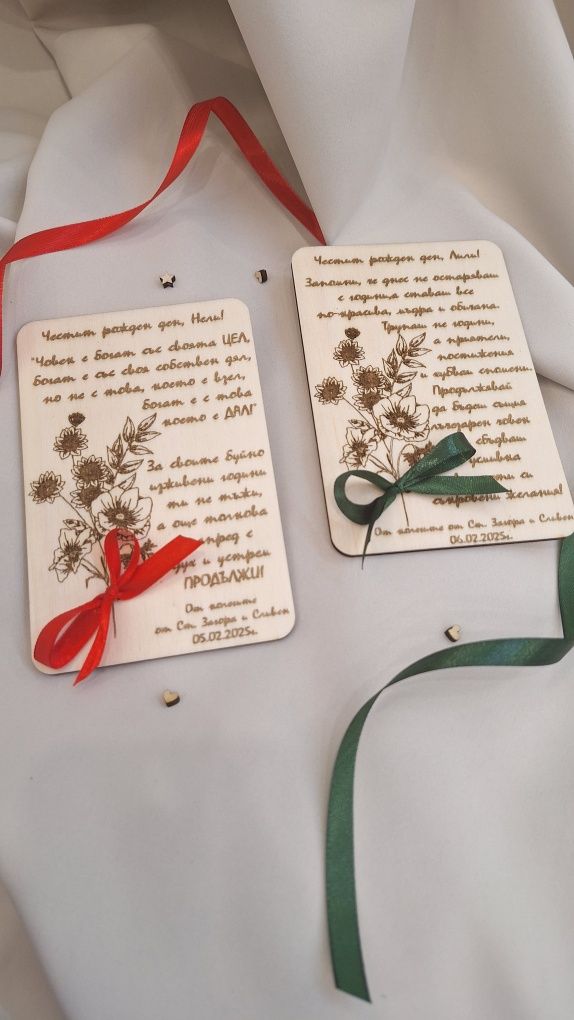 Честит рожден ден, Нели!
"Човек е богат със своята ЦЕЛ,
богат е със своя собствен дял,
но не с това, което е взел,
богат е с това
което е ДАЛ!"
За своите буйно
изживени години
ти не тъжи,
а още толкова
пред с
дух и устрем
ПРОДЪЛЖИ!
От колегите
от Ст. Загора и Сливен
05.02.2025г.
Честит рожден ден, Лили!
Запомни, че днес не остаряваш
с година ставаш все
по-красива, мъдра и обичана.
Трупай не години,
а приятели,
постижения
и хубави спомени.
Продължавай
да бъдеш същия
човек
сбъдваш
си
съкровени желания!
От колегите от Ст. Загора и Сливен
06.02.2025г.